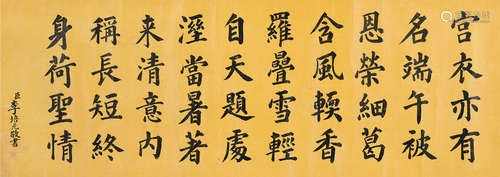 宮衣亦有
名端午被
恩榮細葛
含風輭香
羅疊雪輕
自天題處
溼當暑著
来清意内
稱長短終
身荷聖情
臣李培元敬書